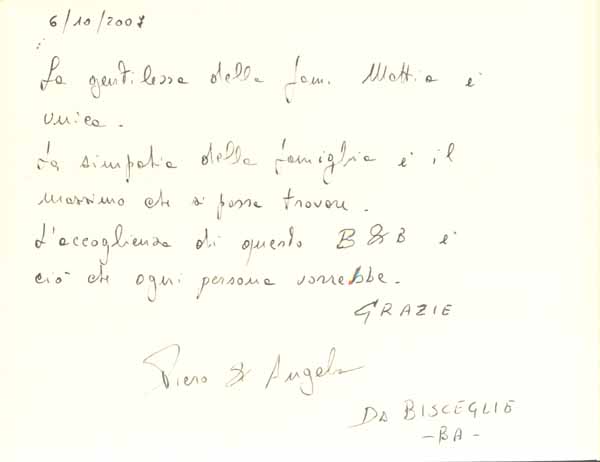 6/10/2007
La gentilezza della fam. Mattia è
unica.
La simpatia della famiglia è il
massimo che si possa trovare.
L'accoglienza di questo B & B è
ciò che ogni persona vorrebbe.
GRAZIE
Piero & Angela
DA BISCEGLIE
-BA-